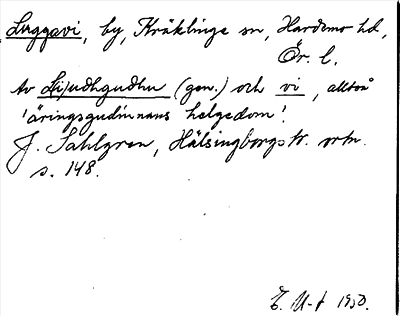 Luggavi, by, Kräklinge sn, Hardemo hd,
Ör. l.
Av Liudhgudhu (gen.) och vi, alltså
'äringsgudinnans helgedom'.
J. Sahlgren, Hälsingborgstr. ortn.
s. 148.
E. M-t 1950.